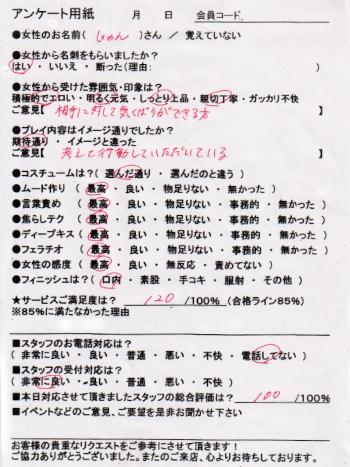 アンケート用紙　　月　　日　　会員コード
●女性のお名前( じゅん )さん ／ 覚えていない
●女性から名刺をもらいましたか?
はい ・ いいえ ・ 断った(理由:　　)
●女性から受けた雰囲気・印象は?
積極的でエロい・明るく元気・しっとり上品・親切丁寧・ガッカリ不快
ご意見【 相手に対して気くばりができる方 】
●プレイ内容はイメージ通りでしたか?
期待通り ・ イメージと違った
ご意見【 考えて行動していただいている 】
●コスチュームは?( 選んだ通り ・ 選んだのと違う )
●ムード作り ( 最高 ・ 良い ・ 物足りない ・ 無かった )
●言葉責め ( 最高 ・ 良い ・ 物足りない ・ 事務的 ・ 無かった )
●焦らしテク ( 最高 ・ 良い ・ 物足りない ・ 事務的 ・ 無かった )
●ディープキス( 最高 ・ 良い ・ 物足りない ・ 事務的 ・ 無かった )
●フェラチオ ( 最高 ・ 良い ・ 物足りない ・ 事務的 ・ 無かった )
●女性の感度 ( 最高 ・ 良い ・ 無反応 ・ 責めてない )
●フィニッシュは?( 口内 ・ 素股 ・ 手コキ ・ 服射 ・ その他 )
★サービスご満足度は? 120 /100% (合格ライン85%)
※85%に満たなかった理由
■スタッフのお電話対応は?
( 非常に良い ・ 良い ・ 普通 ・ 悪い ・ 不快 ・ 電話してない )
■スタッフの受付対応は?
( 非常に良い ・ 良い ・ 普通 ・ 悪い ・ 不快 )
■本日対応させて頂きましたスタッフの総合評価は? 100 /100%
■イベントなどのご意見、ご要望を是非お聞かせ下さい
お客様の貴重なリクエストをご参考にさせて頂きます!
ご協力ありがとうございました。またのご来店、心よりお待ちしております。